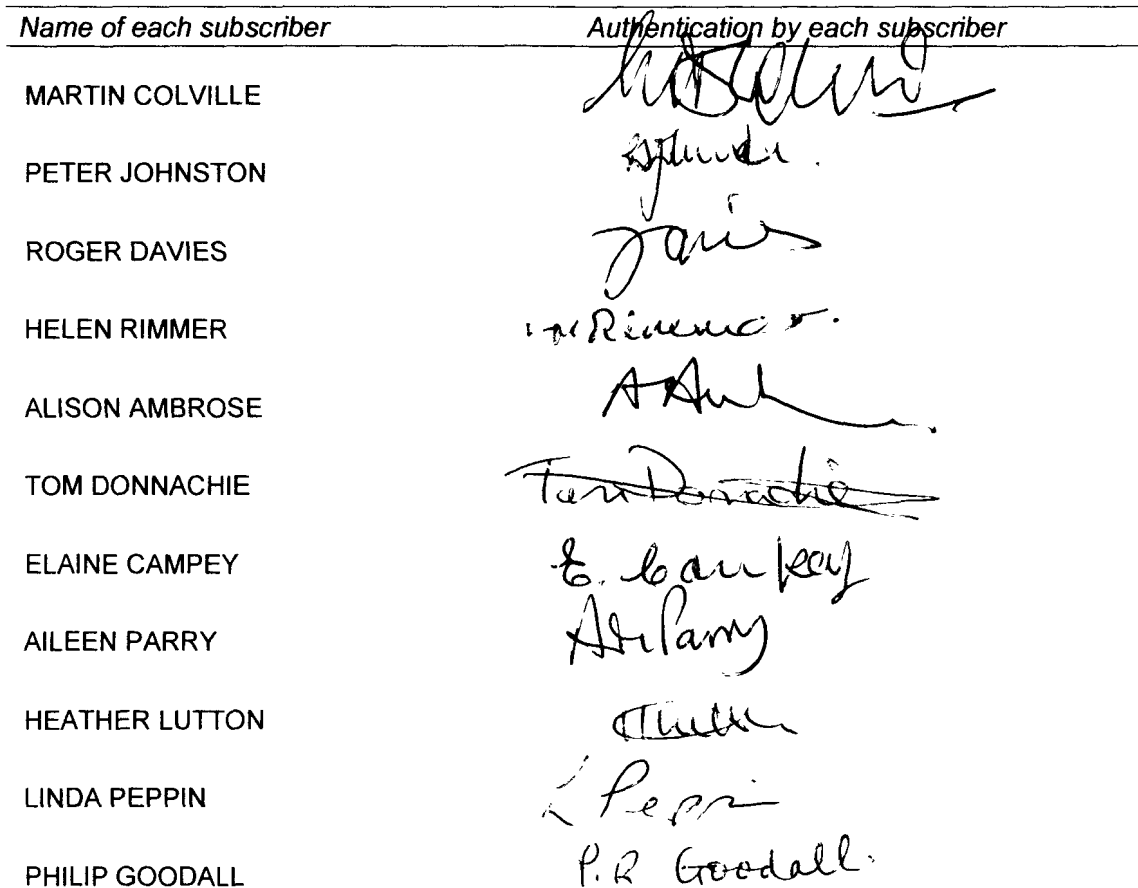 Name of each subscriber Authentication by each subscriber
MARTIN COLVILLE
PETER JOHNSTON
ROGER DAVIES Davies
HELEN RIMMER Rimmer.
ALISON AMBROSE
TOM DONNACHIE Tom Donnachie
ELAINE CAMPEY E. Campey
AILEEN PARRY Parry
HEATHER LUTTON
LINDA PEPPIN L Peppin
PHILIP GOODALL P.R Goodall.